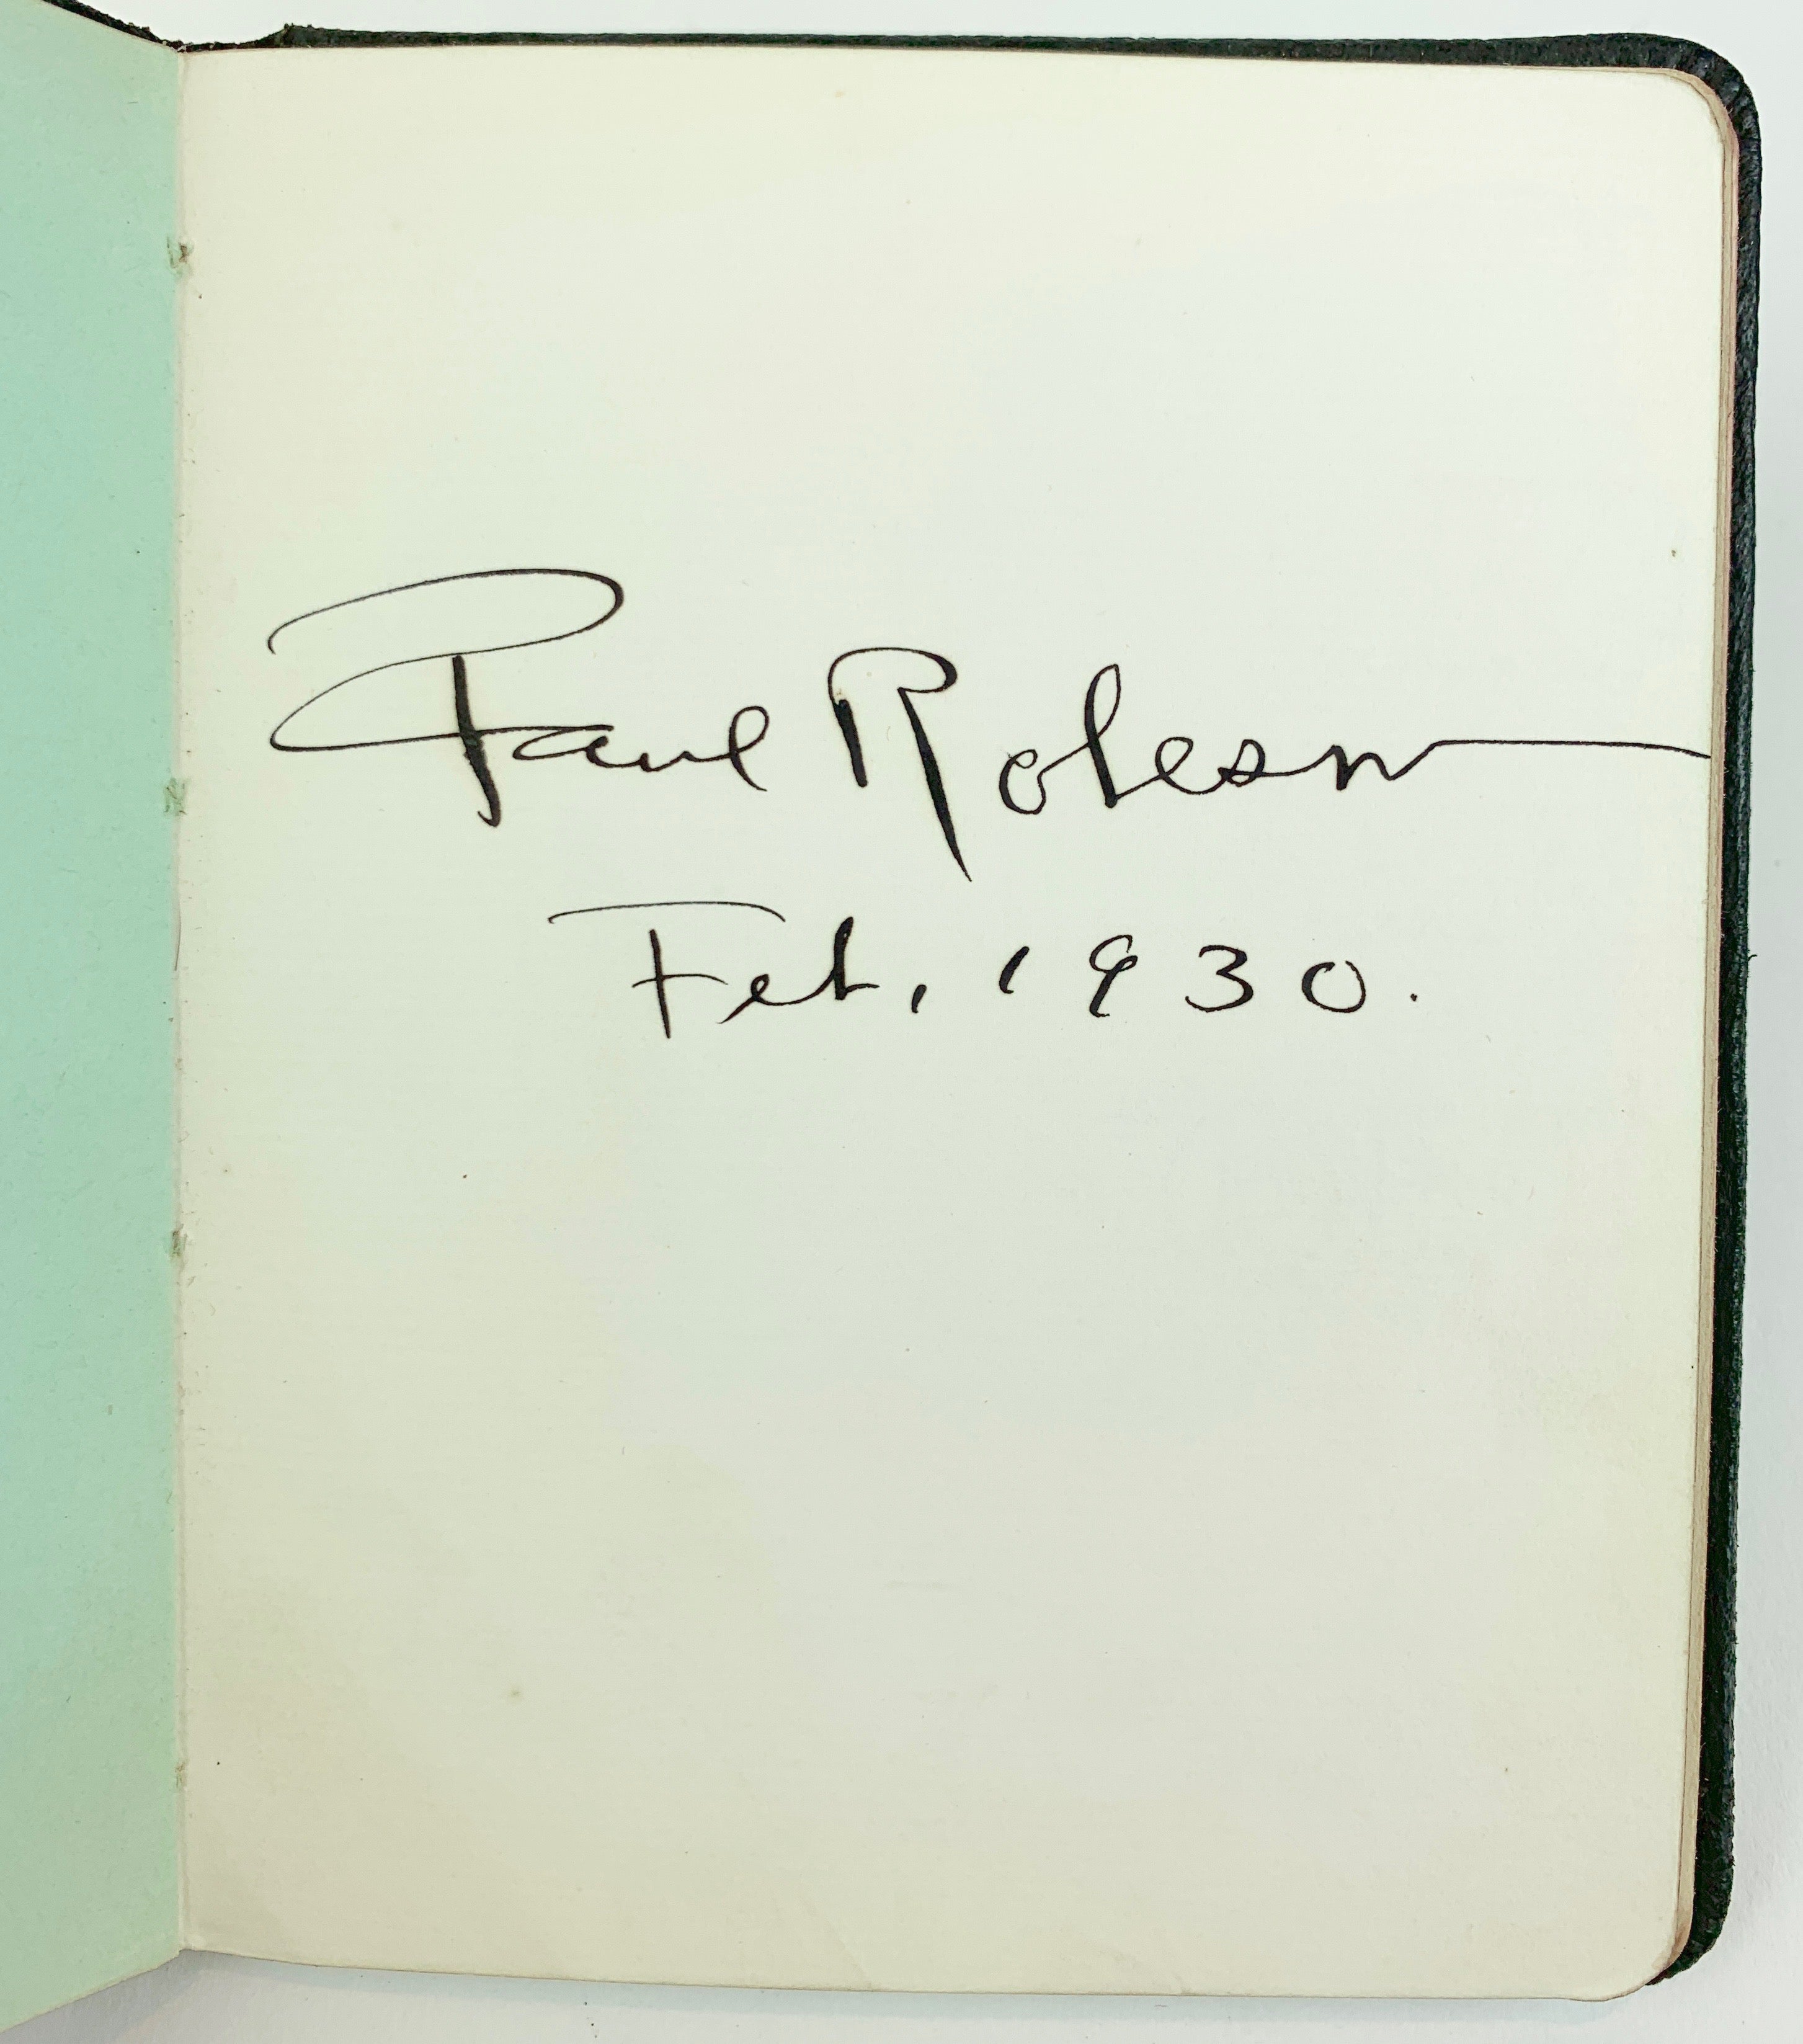 Paul Robeson
Feb. 1930.